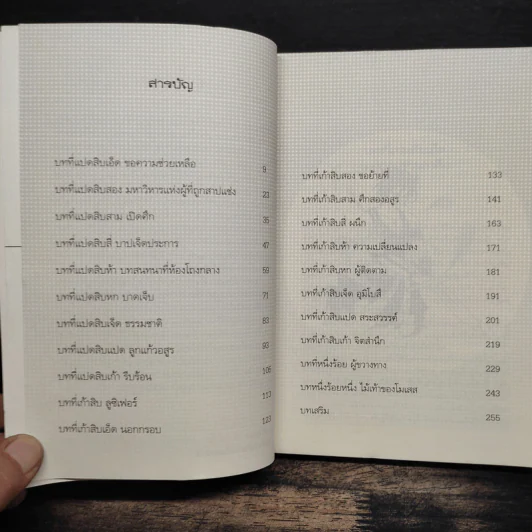 สารบัญ
บทที่แปดสิบเอ็ด ขอความช่วยเหลือ 9
บทที่แปดสิบสอง มหาวิหารแห่งผู้ที่ถูกสาปแช่ง 23
บทที่แปดสิบสาม เปิดศึก 35
บทที่แปดสิบสี่ บาปเจ็ดประการ 47
บทที่แปดสิบห้า บทสนทนาที่ห้องโถงกลาง 59
บทที่แปดสิบหก บาดเจ็บ 71
บทที่แปดสิบเจ็ด ธรรมชาติ 83
บทที่แปดสิบแปด ลูกแก้วอสูร 93
บทที่แปดสิบเก้า รีบร้อน 105
บทที่เก้าสิบ ลูซิเฟอร์ 113
บทที่เก้าสิบเอ็ด นอกกรอบ 123
บทที่เก้าสิบสอง ขอย้ายที่ 133
บทที่เก้าสิบสาม ศึกสองอสูร 141
บทที่เก้าสิบสี่ ผนึก 163
บทที่เก้าสิบห้า ความเปลี่ยนแปลง 171
บทที่เก้าสิบหก ผู้ติดตาม 181
บทที่เก้าสิบเจ็ด อูมิโบสึ 191
บทที่เก้าสิบแปด สระสวรรค์ 201
บทที่เก้าสิบเก้า จิตสำนึก 219
บทที่หนึ่งร้อย ผู้ขวางทาง 229
บทหนึ่งร้อยหนึ่ง ไม้เท้าของโมเสส 243
บทเสริม 255